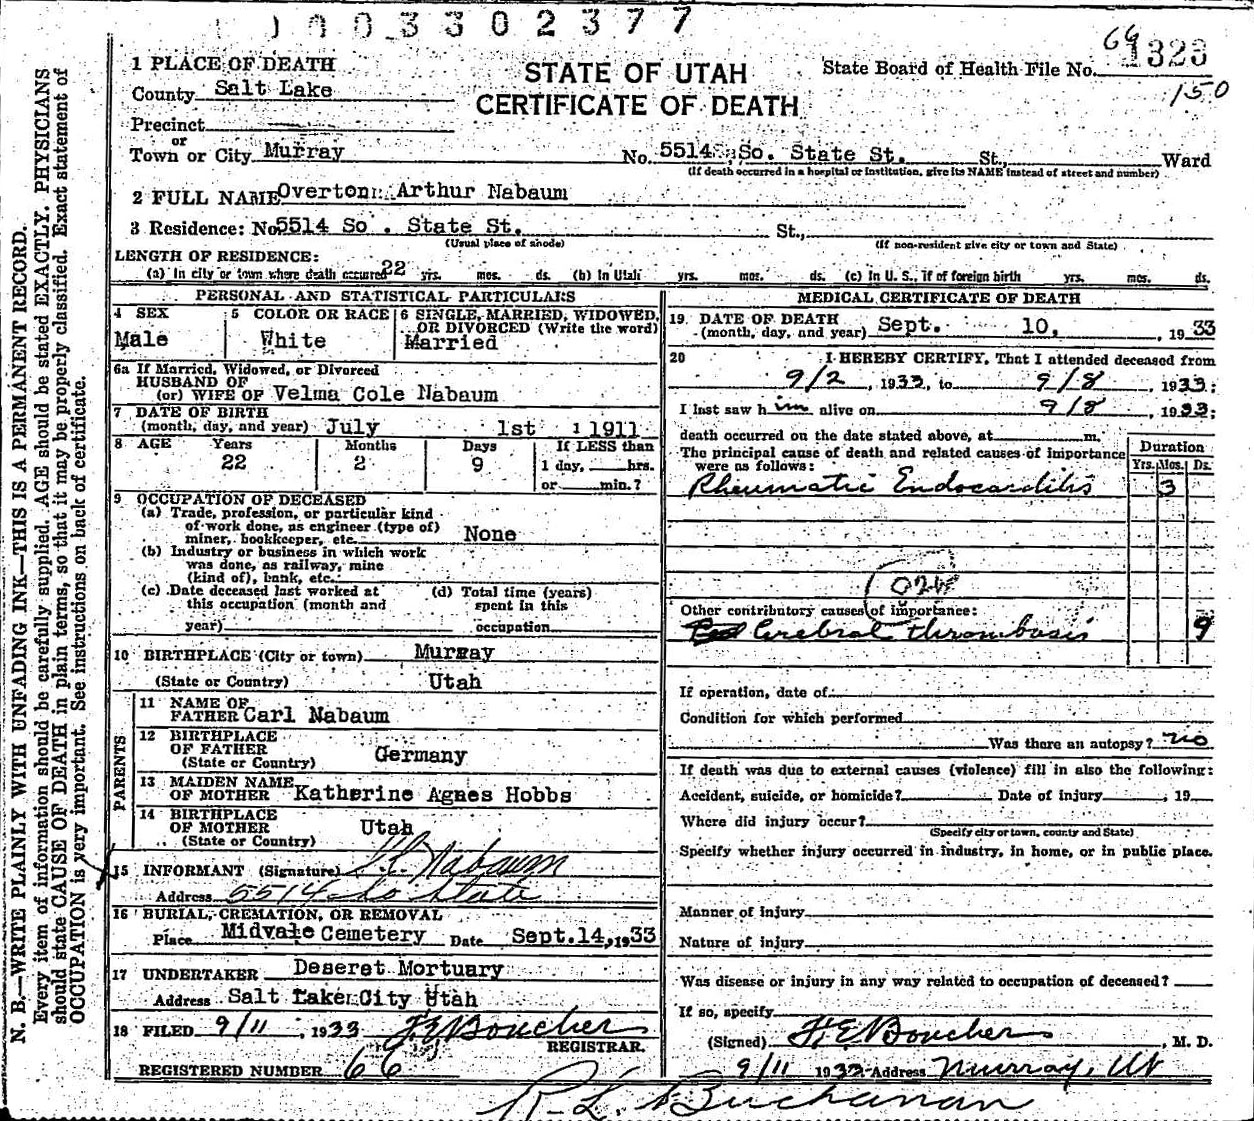 1003302377
1 PLACE OF DEATH
County Salt Lake
Precinct
or
Town or City Murray
STATE OF UTAH
CERTIFICATE OF DEATH
State Board of Health File No. 66 1323
150
No. 5514 So. State St. St., Ward
(If death occurred in a hospital or institution, give its NAME instead of street and number)
2 FULL NAME Overton Arthur Nabaum
3 Residence: No. 5514 So. State St. St.,
(Usual place of abode) (If non-resident give city or town and State)
LENGTH OF RESIDENCE:
(a) In city or town where death occurred 22 yrs. mos. ds. (b) In Utah yrs. mos. ds. (c) In U. S., if of foreign birth yrs. mos. ds.
PERSONAL AND STATISTICAL PARTICULARS
4 SEX
Male
5 COLOR OR RACE
White
6 SINGLE, MARRIED, WIDOWED,
OR DIVORCED (Write the word)
Married
6a If Married, Widowed, or Divorced
HUSBAND OF
(or) WIFE OF Velma Cole Nabaum
7 DATE OF BIRTH
(month, day, and year) July 1st 1911
8 AGE Years Months Days If LESS than
22 2 9 1 day, hrs.
or min.?
9 OCCUPATION OF DECEASED
(a) Trade, profession, or particular kind
of work done, as engineer (type of)
miner, bookkeeper, etc. None
(b) Industry or business in which work
was done, as railway, mine
(kind of), bank, etc.
(c) Date deceased last worked at
this occupation (month and
year)
(d) Total time (years)
spent in this
occupation
10 BIRTHPLACE (City or town) Murray
(State or Country) Utah
PARENTS
11 NAME OF
FATHER Carl Nabaum
12 BIRTHPLACE
OF FATHER
(State or Country) Germany
13 MAIDEN NAME
OF MOTHER Katherine Agnes Hobbs
14 BIRTHPLACE
OF MOTHER Utah
(State or Country)
15 INFORMANT (Signature) Nabaum
Address 5514 So State
16 BURIAL, CREMATION, OR REMOVAL
Place Midvale Cemetery Date Sept. 14, 1933
17 UNDERTAKER Deseret Mortuary
Address Salt Lake City Utah
18 FILED 9/11, 1933 H.E. Boucher
REGISTRAR.
REGISTERED NUMBER 66
MEDICAL CERTIFICATE OF DEATH
19 DATE OF DEATH
(month, day, and year) Sept. 10, 1933
20 I HEREBY CERTIFY, That I attended deceased from
9/2, 1933, to 9/8, 1933;
I last saw him alive on 9/8, 1933;
death occurred on the date stated above, at m.
The principal cause of death and related causes of importance
were as follows:
Duration
Yrs. Mos. Ds.
Rheumatic Endocarditis 3
Other contributory causes of importance:
Cerebral thrombosis 9
If operation, date of
Condition for which performed
Was there an autopsy? no
If death was due to external causes (violence) fill in also the following:
Accident, suicide, or homicide? Date of injury, 19
Where did injury occur?
(Specify city or town, county and State)
Specify whether injury occurred in industry, in home, or in public place.
Manner of injury
Nature of injury
Was disease or injury in any way related to occupation of deceased?
If so, specify
(Signed) H.E. Boucher, M. D.
9/11 1933 Address Murray, Ut
R. L. Buchanan
N. B.—WRITE PLAINLY WITH UNFADING INK—THIS IS A PERMANENT RECORD.
Every item of information should be carefully supplied. AGE should be stated EXACTLY. PHYSICIANS
should state CAUSE OF DEATH in plain terms, so that it may be properly classified. Exact statement of
OCCUPATION is very important. See instructions on back of certificate.